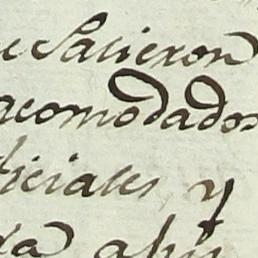 e Salieron
acomodados
ficiales, y